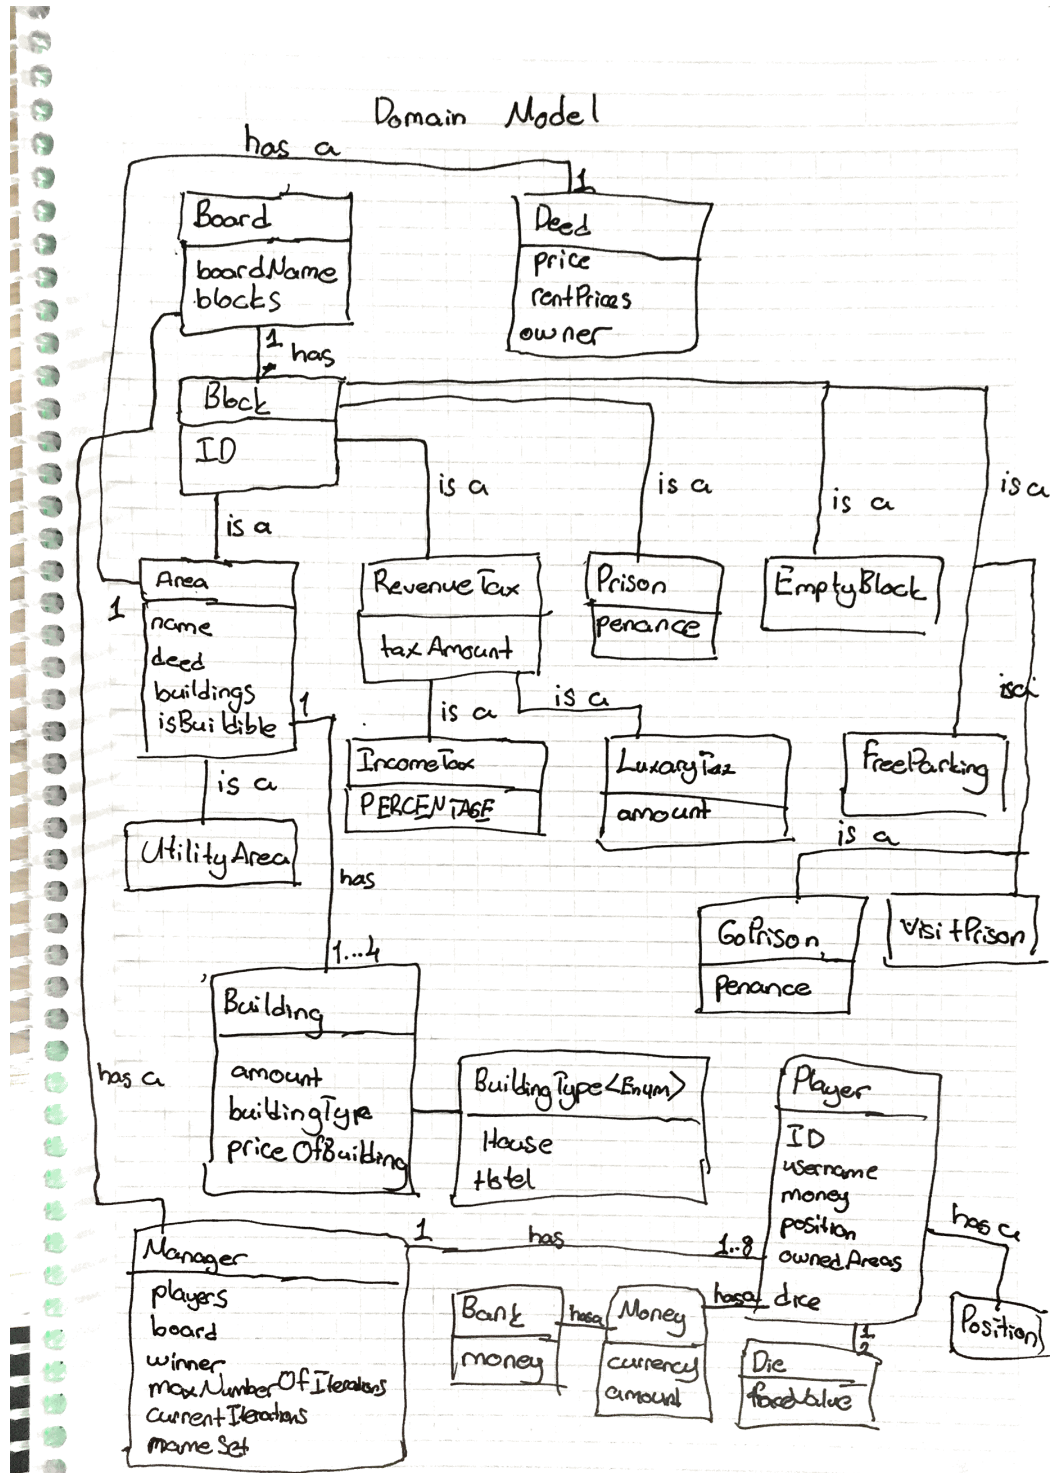 Domain Model
has a
1
Board
boardName
blocks
Deed
price
rentPrices
owner
1
* has
Block
ID
is a
is a
is a
is a
is a
Area
1
name
deed
buildings
isBuildible
1
RevenueTax
taxAmount
Prison
penance
EmptyBlock
is a
is a
is a
is a
IncomeTax
PERCENTAGE
LuxaryTax
amount
FreeParking
is a
UtilityArea
has
1...4
GoPrison
penance
VisitPrison
Building
amount
buildingType
priceOfBuilding
has a
BuildingType<Enum>
House
Hotel
Player
ID
username
money
position
ownedAreas
dice
has a
Position
1
has
1..8
Manager
players
board
winner
maxNumberOfIterations
currentIterations
Bank
money
has a
Money
currency
amount
has a
1
2
Die
faceValue